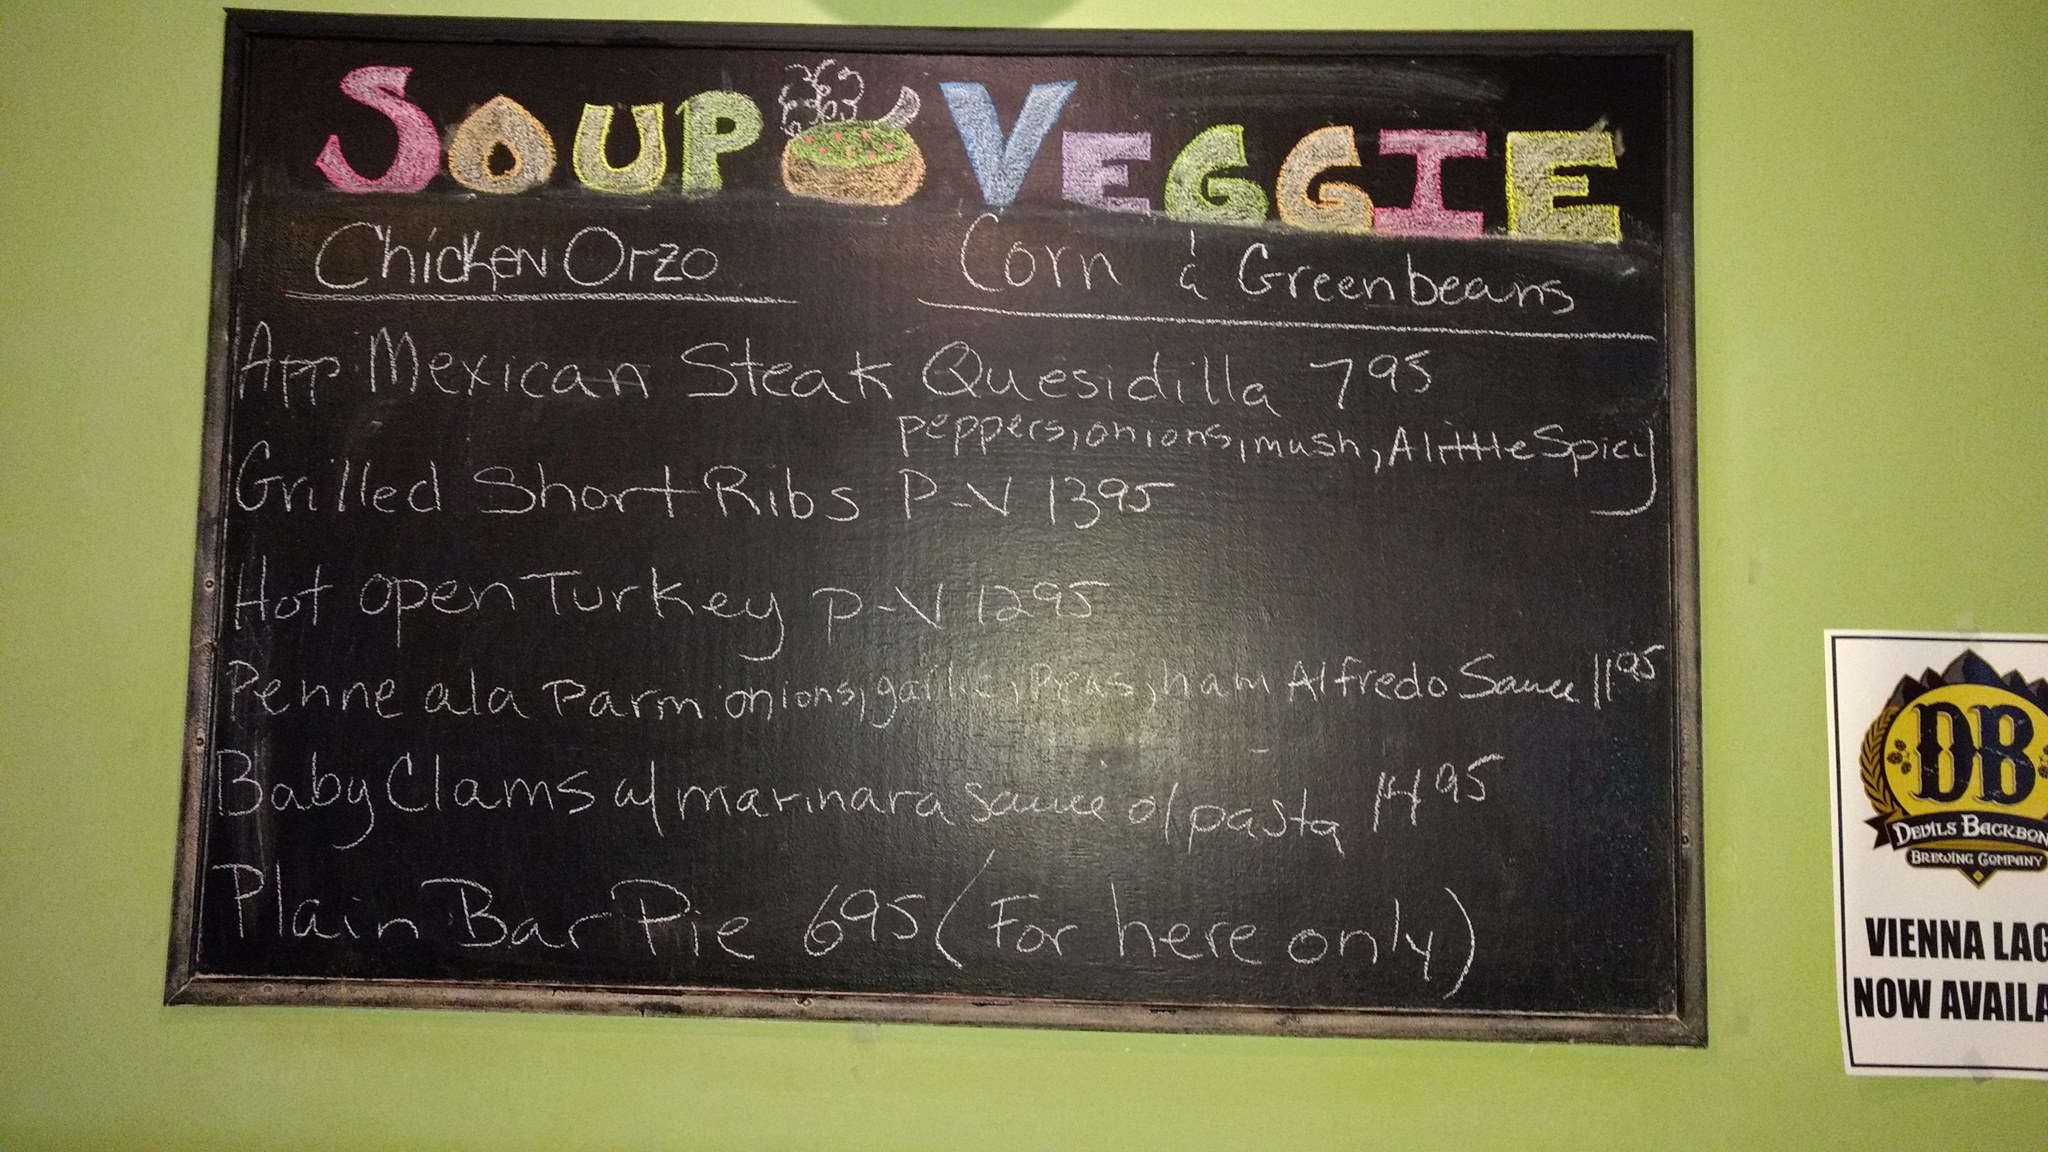 SOUP VEGGIE
Chicken Orzo Corn & Greenbeans
App Mexican Steak Quesidilla 795
peppers, onions, mush, A little Spicy
Grilled Short Ribs P-V 1395
Hot open Turkey P-V 1295
Penne ala Parm onions, garlic, Peas, ham Alfredo Sauce 1195
Baby Clams w/ marinara sauce o/ pasta 1495
Plain Bar Pie 695 (For here only)
DB
DEVILS BACKBON
BREWING COMPANY
VIENNA LAG
NOW AVAILA